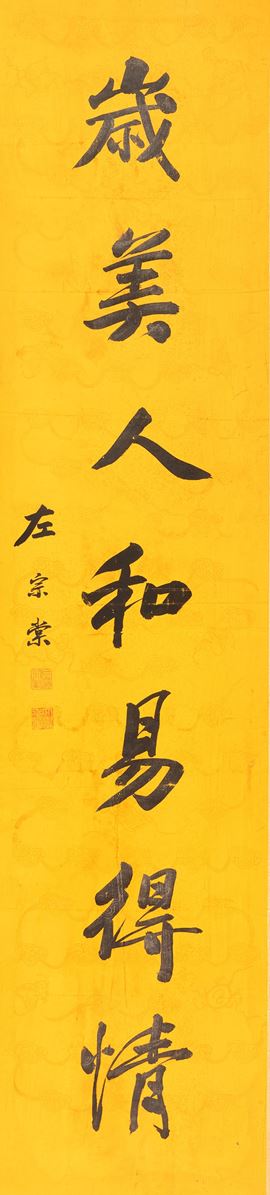 歳美人和易得情
左宗棠